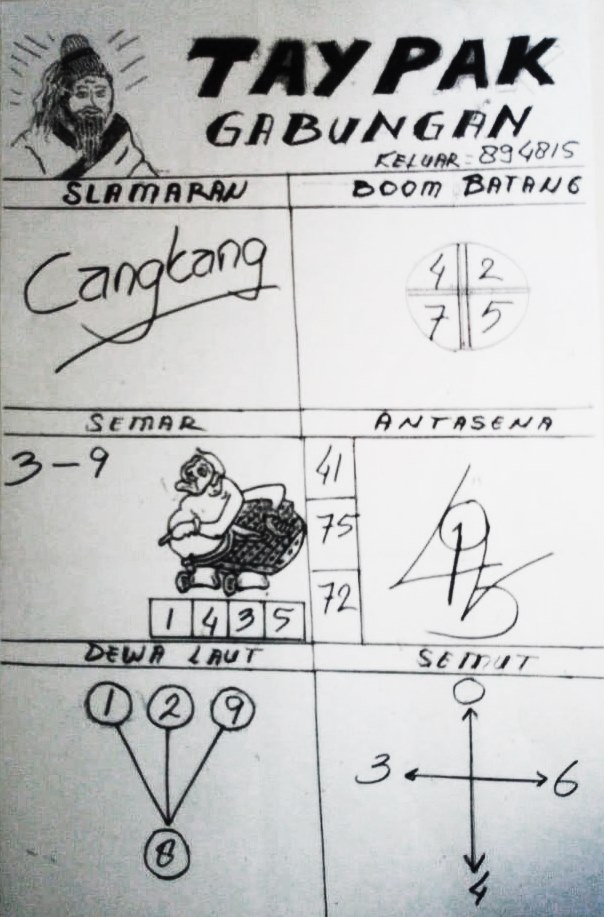 TAYPAK
GABUNGAN
KELUAR = 894815
SLAMARAN
BOOM BATANG
Cangkang
4 2
7 5
SEMAR
ANTASENA
3-9
41
75
72
1 4 3 5
DEWA LAUT
SEMUT
1 2 9
8
0
3 6
4